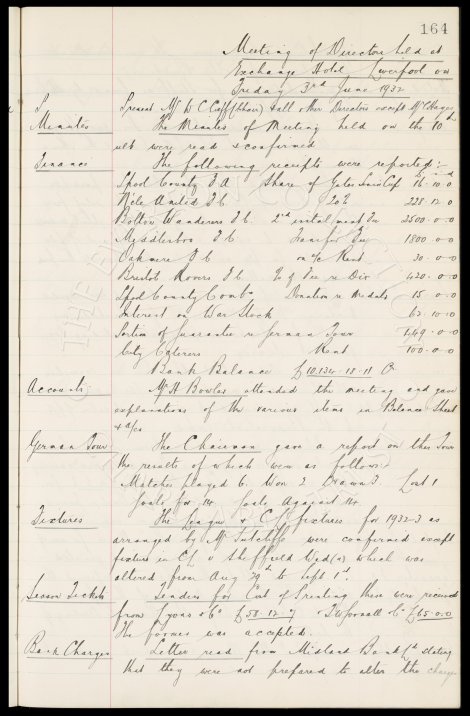 164
Meeting of Directors held at
Exchange Hotel Liverpool on
Friday 3rd June 1932
Present Mr W C Cuff (Chair) & all other Directors except Mr
Minutes The Minutes of Meeting held on the 10th
ult were read & confirmed
Finance The following receipts were reported:-
£ s d
Lpool County F A Share of Gates Snr Cup 16. 10. 0
N'cle United F C 20% 228. 12. 0
Bolton Wanderers F C. 2nd instalment Fee 2500-0-0
Myddlesbro F C Transfer Fee 1800-0-0
Oakmere F C on a/c Rent 30-0-0
Bristol Rovers F C % of Fee re Dix 420-0-0
Lpool County Comb Donation re Medals 15-0-0
Interest on War Stock 63. 10. 0
Portion of Guarantee re German Tour 449-0-0
City Caterers Rent 100-0-0
Bank Balance £10,134-18-11 Cr
Accounts: Mr H Bowles attended the meeting and gave
explanations of the various items in Balance Sheet
& a/cs
German Tour The Chairman gave a report on this Tour
the results of which were as follows:-
Matches played 6. Won 2 Drawn 3 Lost 1
Goals for 14 Goals Against 14
Fixtures The League & C L fixtures for 1932-3 as
arranged by Mr Sutcliffe were confirmed except
fixture in C L v Sheffield Wed (a) which was
altered from Aug 29th to Sept 1st.
Season Tickets Tenders for Cost of Printing these were received
from Lyons & Co £58-12-9 & £65-0-0
The former was accepted.
Bank Charges Letter read from Midland Bank Ld stating
that they were not prepared to alter the charge